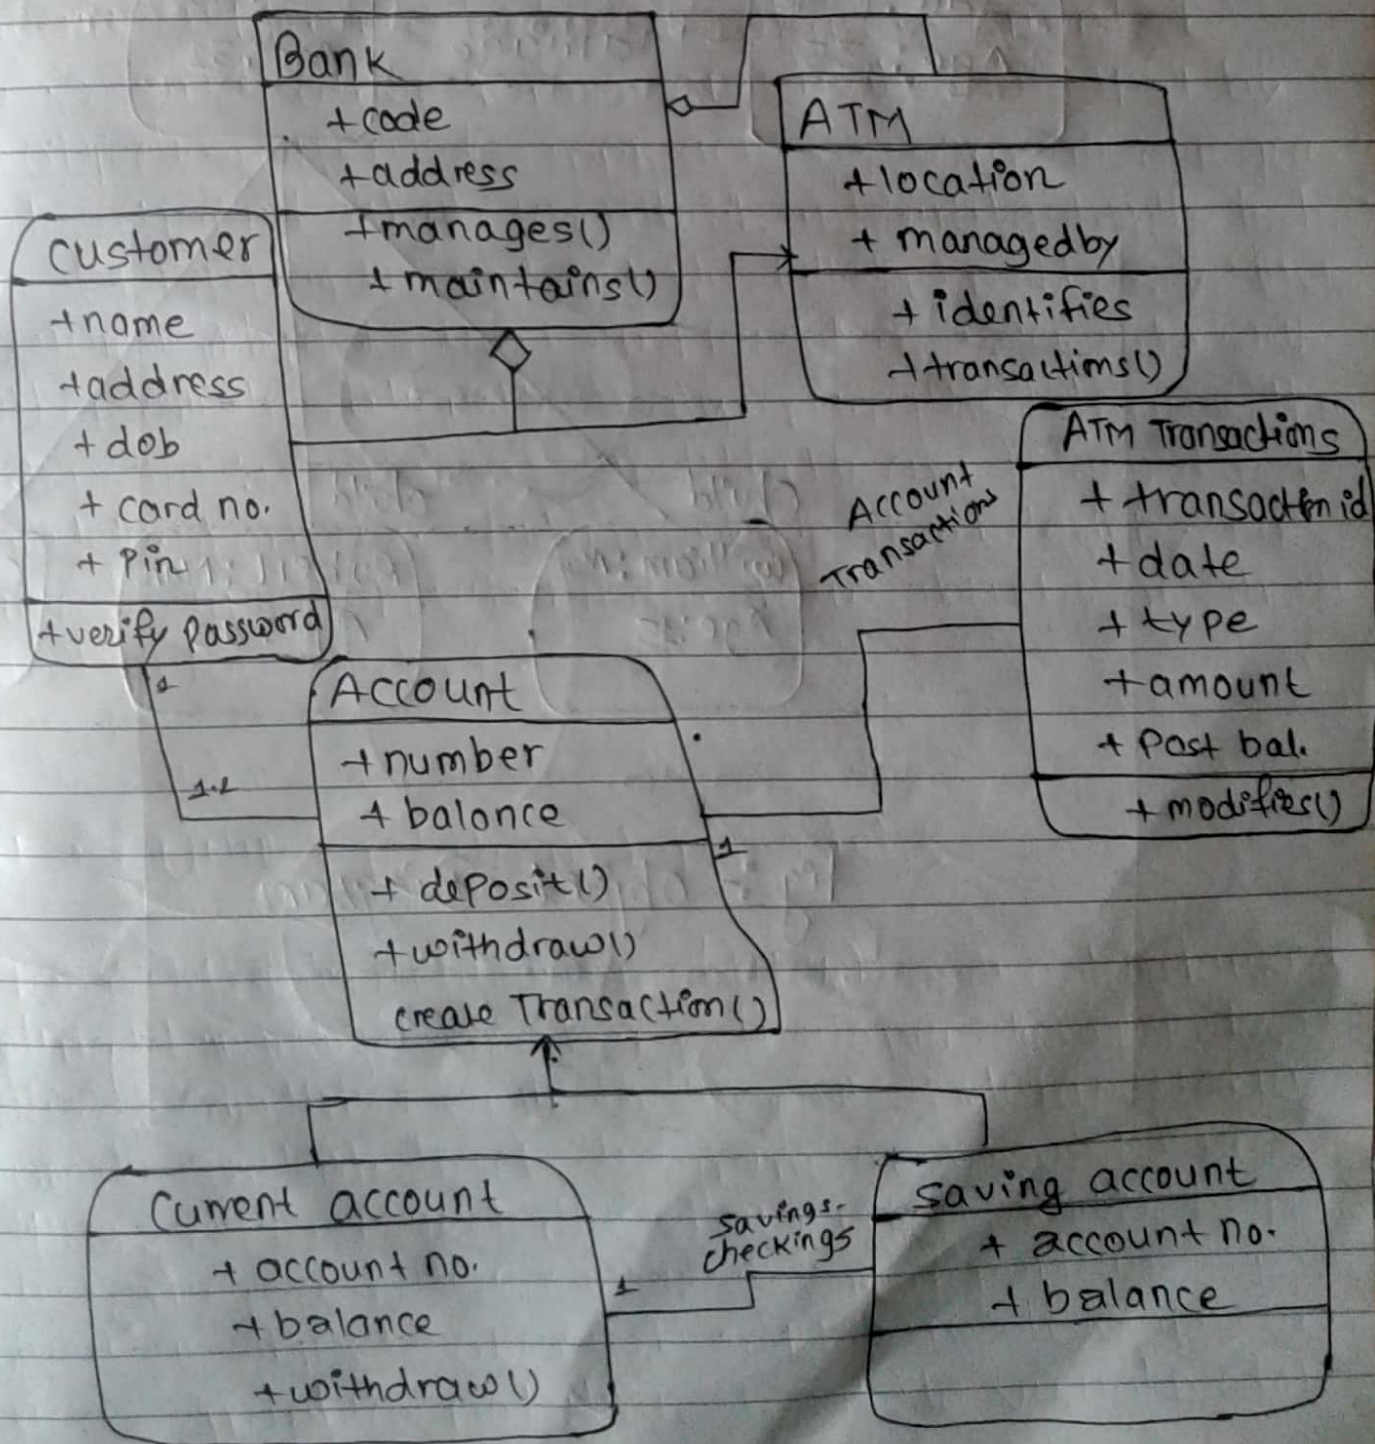 Bank
+code
+address
+manages()
+maintains()
ATM
+location
+ managedby
+ identifies
+transactims()
customer
+name
+address
+ dob
+ card no.
+ Pin
+verify Password
1
1..2
ATM Transactions
+ transaction id
+date
+ type
+amount
+ Post bal.
+ modifies()
Account
Transactions
Account
+number
+ balance
+ deposit()
+withdraw()
create Transaction()
1
Current account
+ account no.
+ balance
+withdraw()
1
savings-
checkings
saving account
+ account no.
+ balance